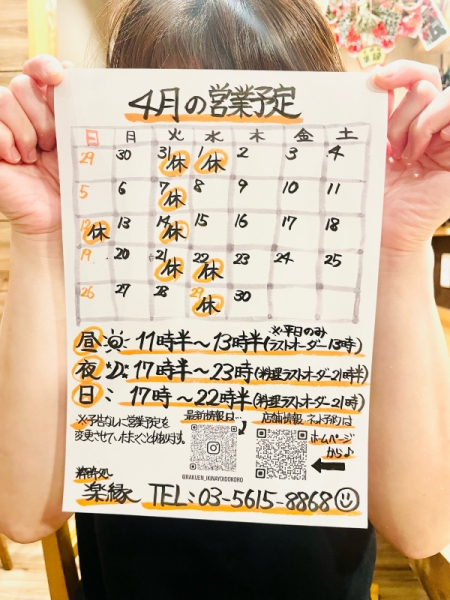 4月の営業予定
日 月 火 水 木 金 土
29 30 31休 1休 2 3 4
5 6 7休 8 9 10 11
12休 13 14休 15 16 17 18
19 20 21休 22休 23 24 25
26 27 28 29休 30
※平日のみ
昼: 11時半〜13時半(ラストオーダー13時)
夜: 17時半〜23時(料理ラストオーダー21時半)
日: 17時〜22時半(料理ラストオーダー21時)
※予告なしに営業予定を
変更させていただくことがあります。
最新情報は…
@RAKUEN_IKINAYOIDOKORO
店舗情報 ネット予約は
ホームページ
から♪
粋酔処
楽縁 TEL:03-5615-8868